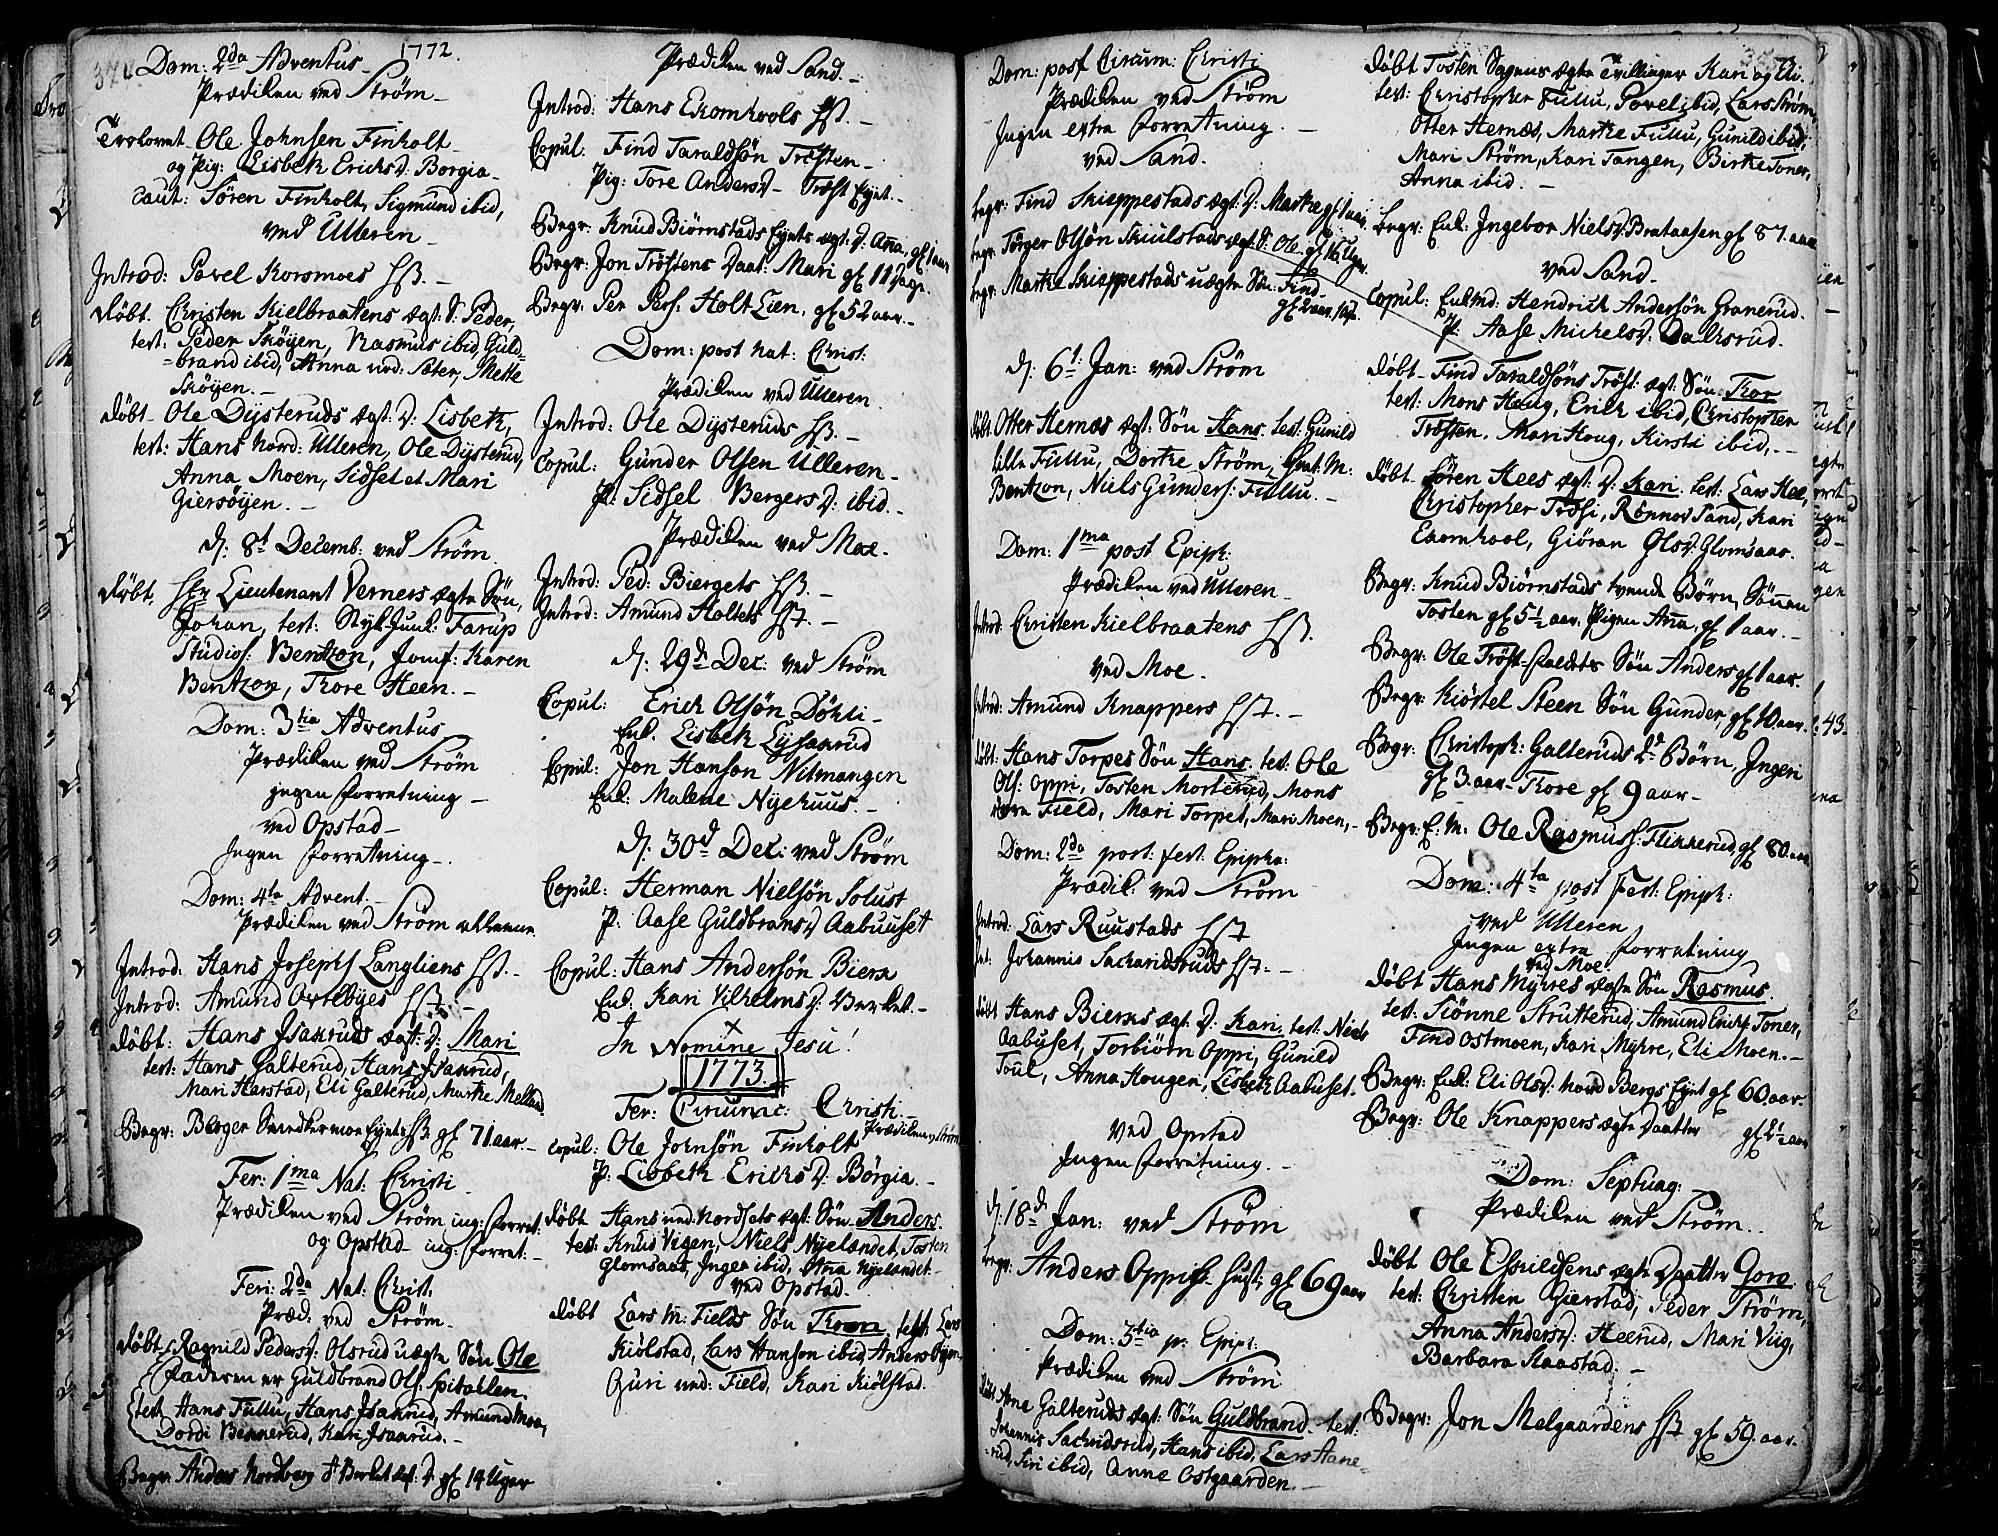 374
1772.
Dom: 2da Adventus
Prædiken ved Strøm
Trolovet Ole Johnsen Finholt
og Pig: Lisbeth Ericksd: Borgia
Caut: Søren Finholt, Sigmund ibid,
ved Ulleren
Introd: Povel Korsmoes
Døbt. Christen Kielbraatens ægt: S: Peder,
test: Peder Skøyen, Rasmus ibid, Guld-
=brand ibid, Anna ned: Sæter, Mette
Skøyen.
Døbt Ole Dysteruds ægt: D: Lisbeth,
test: Hans Nord: Ulleren, Ole Dysterud,
Anna Moen, Sidsel et Mari
Giersøyen.
d: 8t Decemb: ved Strøm
Døbt. Hr Lieutenant Verners ægte Søn,
Johan, test: Junk: Farup
Studios: Bentzon, Jomf: Karen
Bentzon, Thore Heen.
Dom: 3tia Adventus
Prædiken ved Strøm
jngen forretning
ved Opstad
Jngen forretning
Dom: 4ta Advent.
Prædiken ved Strøm allene
Introd: Hans Josephs Langliens
Introd: Amund Ovrebyes
Døbt: Hans Jsakruds ægt: D: Mari
test: Hans Galterud, Hans Jsakrud,
Mari Harstad, Eli Galterud, Marthe Mellad
Begr: Berger Smedkermoe Eyets gl 71 aar.
Fer: 1ma Nat: Christi
Prædiken ved Strøm ing: forret:
og Opstad ing: forret.
Fer: 2da Nat: Christ.
Præd: ved Strøm.
Døbt Ragnild Pedersd: Olsrud uægte Søn Ole
Faderen er Guldbrand Ols: Spitahlen.
test: Hans Fullu, Hans Jsakrud, Amund Moe,
Dordi Bennerud, Kari Jsaarud.
Begr: Anders Nordberg ægt: D: gl 14 Uger
Prædiken ved Sand.
Introd: Hans Ekornhools
Copul: Find Taraldsøn Trøsten
Pig: Tore Andersd Trøst Eyet.
Begr: Knud Biørnstads Eyets ægt: D: Aña, gl 1 aar
Begr: Jon Trøstens Daat: Mari gl 11 Dage.
Begr: Per Pers: Holt Lien, gl 52 aar.
Dom: post Nat: Christ:
Prædiken ved Ulleren.
Introd: Ole Dysteruds
Copul: Gunder Olsen Ulleren
P: Sidsel Bergersd: ibid.
Prædiken ved Moe.
Introd: Ped: Biergets
Introd: Amund Holtets
d: 29de Dec: ved Strøm
Copul: Erick Olsøn Døhli
Enk. Lisbeth Lysakrud
Copul: Jon Hanson Nitmangen
Enk: Malene Nyehuus.
d: 30d Dec: ved Strøm
Copul: Herman Nielsøn Solust
P: Aase Guldbransd Aabuuset
Copul: Hans Andersøn Bierke
Enk. Kari Vilhelmsd: Berket
In Nomine Jesu!
1773.
Fer: Circumc: Christi.
Prædiken Strøm
Copul: Ole Johnsøn Finholt
P: Lisbeth Ericksd: Børgia.
Døbt Hans ned: Nordsets ægt: Søn Anders
test: Knud Vigen, Niels Nyelandet, Tosten
Glomsaas, Jnger ibid, Aña Nyelandet.
ved Opstad.
Døbt Lars M: Fields Søn Thron, test: Lars
Kiølstad, Lars Hanson ibid, Anders
Guri ned: Field, Kari Kiølstad.
Dom: post Circum: Christi
Prædiken ved Strøm
Jngen extra forretning.
ved Sand.
begr: Find Skieppestads ægt: D: Marthe gl 1 aar
begr: Torger Olsøn Skiulstads ægt: S. Ole gl 16 Uger
begr: Marthe Skieppestads uægte Søn: Find
gl 2 aar
d: 6t Jan: ved Strøm
Døbt: Otter Hernæs ægt: Søn Hans. test: Gunild
lille Fullu, Dorthe Strøm, M:
Bentzon, Niels Gunders: Fullu.
Dom: 1ma post Epiph:
Prædiken ved Ulleren
Introd Christen Kielbraatens
ved Moe.
Introd: Amund Knappers
Døbt: Hans Torpes Søn Hans. test: Ole
Ols: Oppi, Tosten Morterud, Mons
Field, Mari Torpet, Mari Moen,
Dom: 2da post: fest: Epipha:
Prædik: ved Strøm
Introd. Lars Ruustads
Int: Johannis Sacharidsruds
Døbt Hans Bierkes ægt: D: Kari. test: Niels
Aabuset, Torbiørn Oppi, Gunild
Toul, Anna Hougen, Lisbeth Aabuset.
Ved Opstad
Jngen forretning.
d: 18de Jan: ved Strøm
begr: Anders Oppis Hust: gl 69 aar
Dom: 3tia p: Epiph:
Prædiken ved Strøm
Døbt Arne Galteruds ægt: Søn Guldbrand. test:
Johannis Sacharidsrud, Hans ibid, Lars Hane-
rud, Siri ibid, Anne Ostgaarden.
Døbt Tosten Sagens ægte Tvillinger Kari og Eli.
test: Christopher Fullu, Povel ibid, Lars Strøm,
Otter Hernæs, Marthe Fullu, Gunild ibid,
Mari Strøm, Kari Tangen, Birthe Toner,
Anna ibid.
Begr: Enk: Jngebor Nielsd: Brataasen gl 87. aar
ved Sand.
Copul: Enkmd: Hendrich Andersøn Granerud.
P: Aase Michelsd: Dalksrud.
Døbt Find Taraldsøns Trøst: ægt: Søn: Thor
test: Mons Houg, Erich ibid, Christopher
Trøsten. Mari Houg, Kirsti ibid,
Døbt Søren Hees ægt: D: Kari. test: Lars Hee,
Christopher Trøsi, Rønnov Sand, Kari
Ekornhool, Giøran Olsd: Glomsaas.
Begr: Knud Biørnstads tvende Børn, Sønnen
Tosten gl 5½ aar, Pigen Aña, gl 1 aar.
Begr: Ole Trøst-faldets Søn Anders gl 1 aar.
Begr: Kiøstel Steen Søn Gunder, gl 10 aar.
Begr: Christoph: Galteruds 2de Børn, Jngeri
gl 3 aar Thore gl 9 aar
Begr: E: M: Ole Rasmuss: Flikkerud, gl 80 aar
Dom: 4ta post Fest: Epiph:
ved Ulleren
Jngen extra forretning
ved Moe
Døbt Hans Myhres ægte Søn Rasmus.
test: Siønne Strutterud, Amund Erichs: Toner,
Find Ostmoen, Kari Myhre, Eli Moen.
Begr: Enk: Eli Olsd: Nord Bergs Eyet gl 60 aar.
Begr: Ole Knappers ægte Daatter gl 2½ aar
Dom: Septuag:
Prædiken ved Strøm.
Døbt Ole Eskildsens ægte Daatter Gore
test: Christen Gierstad, Peder Strøm,
Anna Andersd: Heerud, Mari Viig,
Barbara Kaastad.
Begr: Jon Melgaardens gl 59. aar.